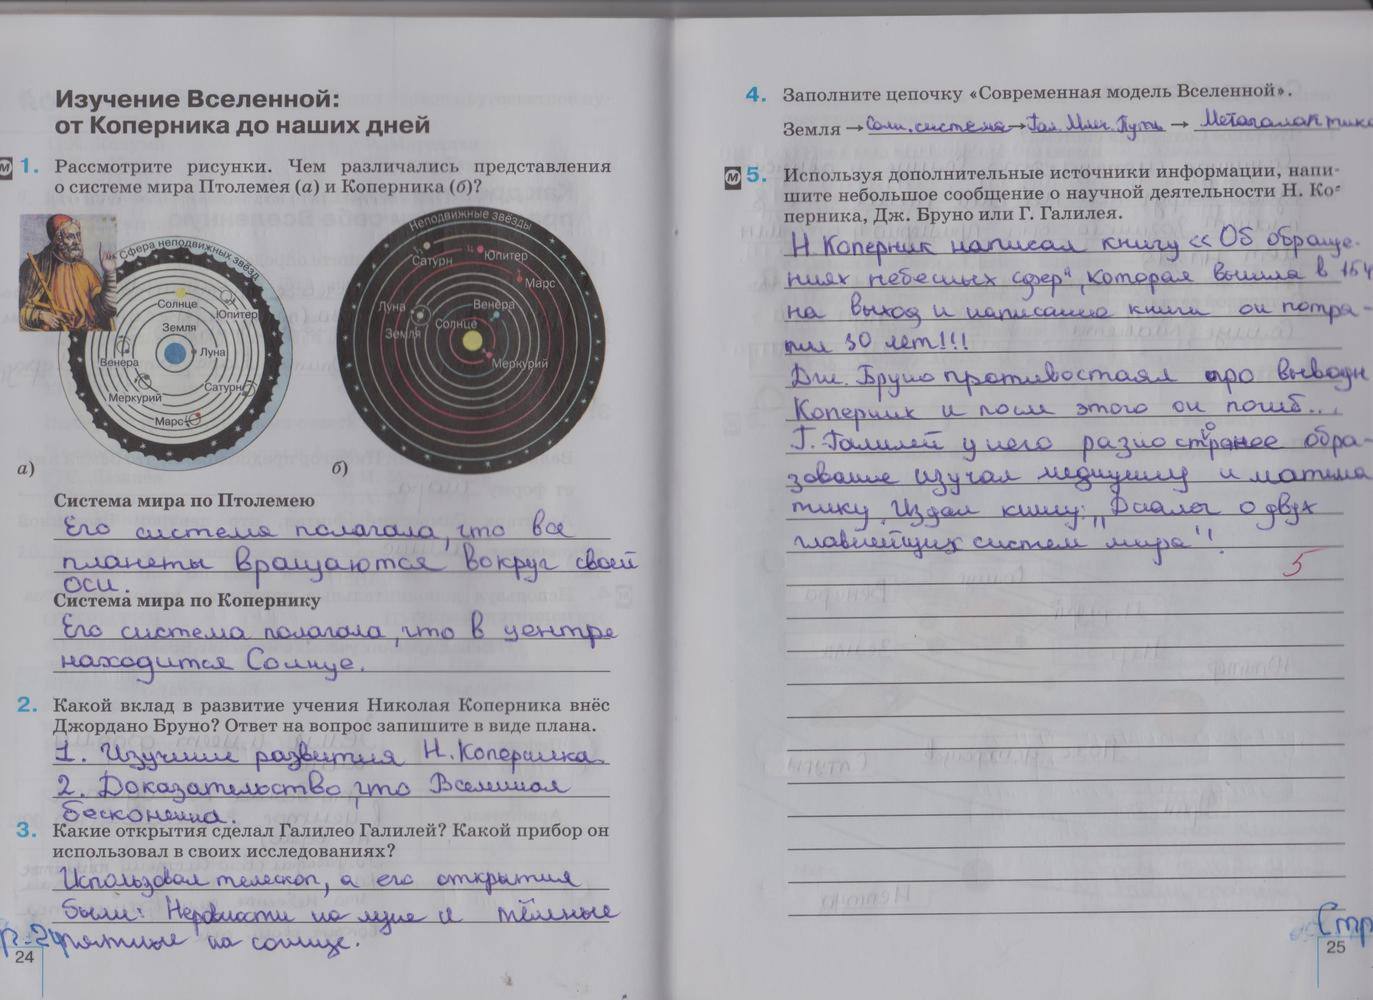 Изучение Вселенной:
от Коперника до наших дней
М 1. Рассмотрите рисунки. Чем различались представления
о системе мира Птолемея (а) и Коперника (б)?
Сфера неподвижных звёзд
Солнце
Юпитер
Земля
Луна
Венера
Меркурий
Сатурн
Марс
а)
Неподвижные звёзды
Сатурн
Юпитер
Марс
Луна
Венера
Земля
Солнце
Меркурий
б)
Система мира по Птолемею
Его система полагала, что все
планеты вращаются вокруг своей
оси.
Система мира по Копернику
Его система полагала, что в центре
находится Солнце.
2. Какой вклад в развитие учения Николая Коперника внёс
Джордано Бруно? Ответ на вопрос запишите в виде плана.
1. Изучение развития Н. Коперника.
2. Доказательство, что Вселенная
бесконечна.
3. Какие открытия сделал Галилео Галилей? Какой прибор он
использовал в своих исследованиях?
Использовал телескоп, а его открытия
были: Неровности на луне и тёмные
пятные на солнце.
24
4. Заполните цепочку «Современная модель Вселенной».
Земля → Солн. система → Гал. Млеч. Путь → Метагалактика
М 5. Используя дополнительные источники информации, напи-
шите небольшое сообщение о научной деятельности Н. Ко-
перника, Дж. Бруно или Г. Галилея.
Н. Коперник написал книгу «Об обраще-
ниях небесных сфер", которая вышла в 154
на выход и написание книги он потра-
тил 30 лет!!!
Дж. Бруно противостоял про выводы
Коперник и после этого он погиб...
Г. Галилей у него разностороннее обра-
зование изучал медицину и матема
тику. Издал книгу: „Диалог о двух
главнейших систем мира"!
5
Стр
25